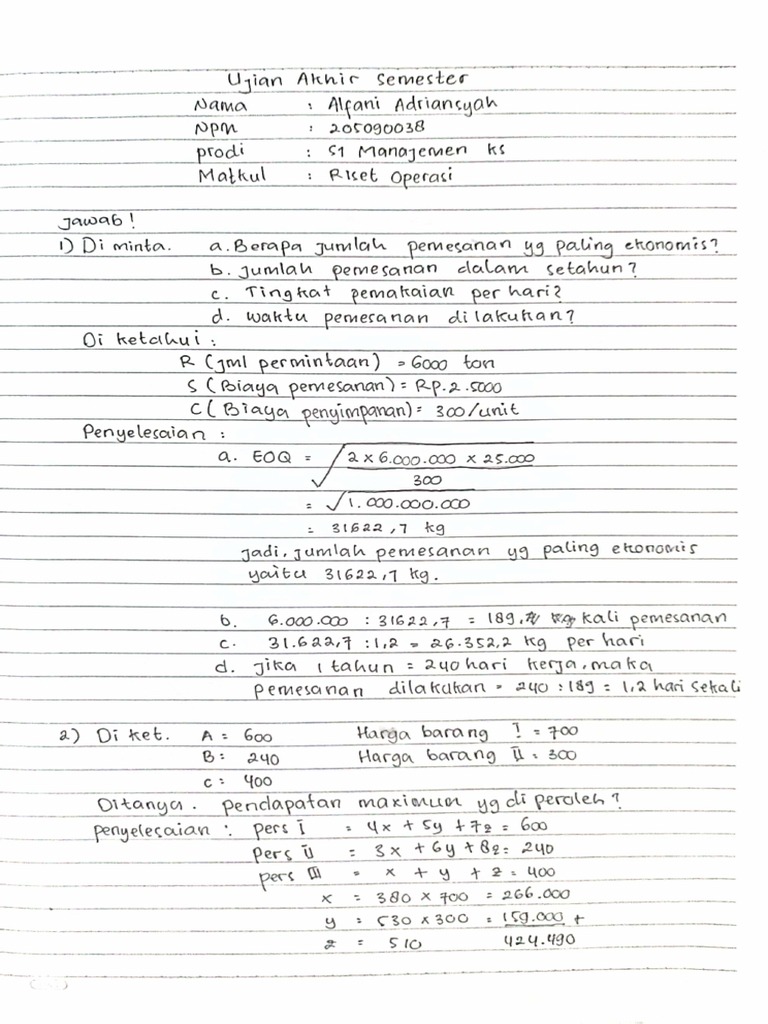 Ujian Akhir Semester
Nama : Alfani Adriansyah
NPM : 205090038
prodi : S1 Manajemen KS
Matkul : Riset Operasi
Jawab !
1) Di minta. a. Berapa jumlah pemesanan yg paling ekonomis?
b. jumlah pemesanan dalam setahun?
c. Tingkat pemakaian per hari?
d. waktu pemesanan dilakukan?
Di ketahui :
R (jml permintaan) = 6000 ton
S (Biaya pemesanan) = Rp. 2.5000
C ( Biaya penyimpanan) = 300/unit
Penyelesaian :
a. EOQ = √ 2 x 6.000.000 x 25.000
300
= √ 1.000.000.000
= 31622,7 kg
jadi, jumlah pemesanan yg paling ekonomis
yaitu 31622,7 kg.
b. 6.000.000 : 31622,7 = 189, kali pemesanan
c. 31.622,7 : 1,2 = 26.352,2 kg per hari
d. jika 1 tahun = 240 hari kerja, maka
pemesanan dilakukan = 240 : 189 = 1,2 hari sekali
2) Di ket. A = 600 Harga barang I = 700
B = 240 Harga barang II = 300
C = 400
Ditanya. pendapatan maximun yg di peroleh?
penyelesaian : pers I = 4x + 5y + 7z = 600
pers II = 3x + 6y + 8z = 240
pers III = x + y + z = 400
x = 380 x 700 = 266.000
y = 530 x 300 = 159.000 +
z = 510 424.490